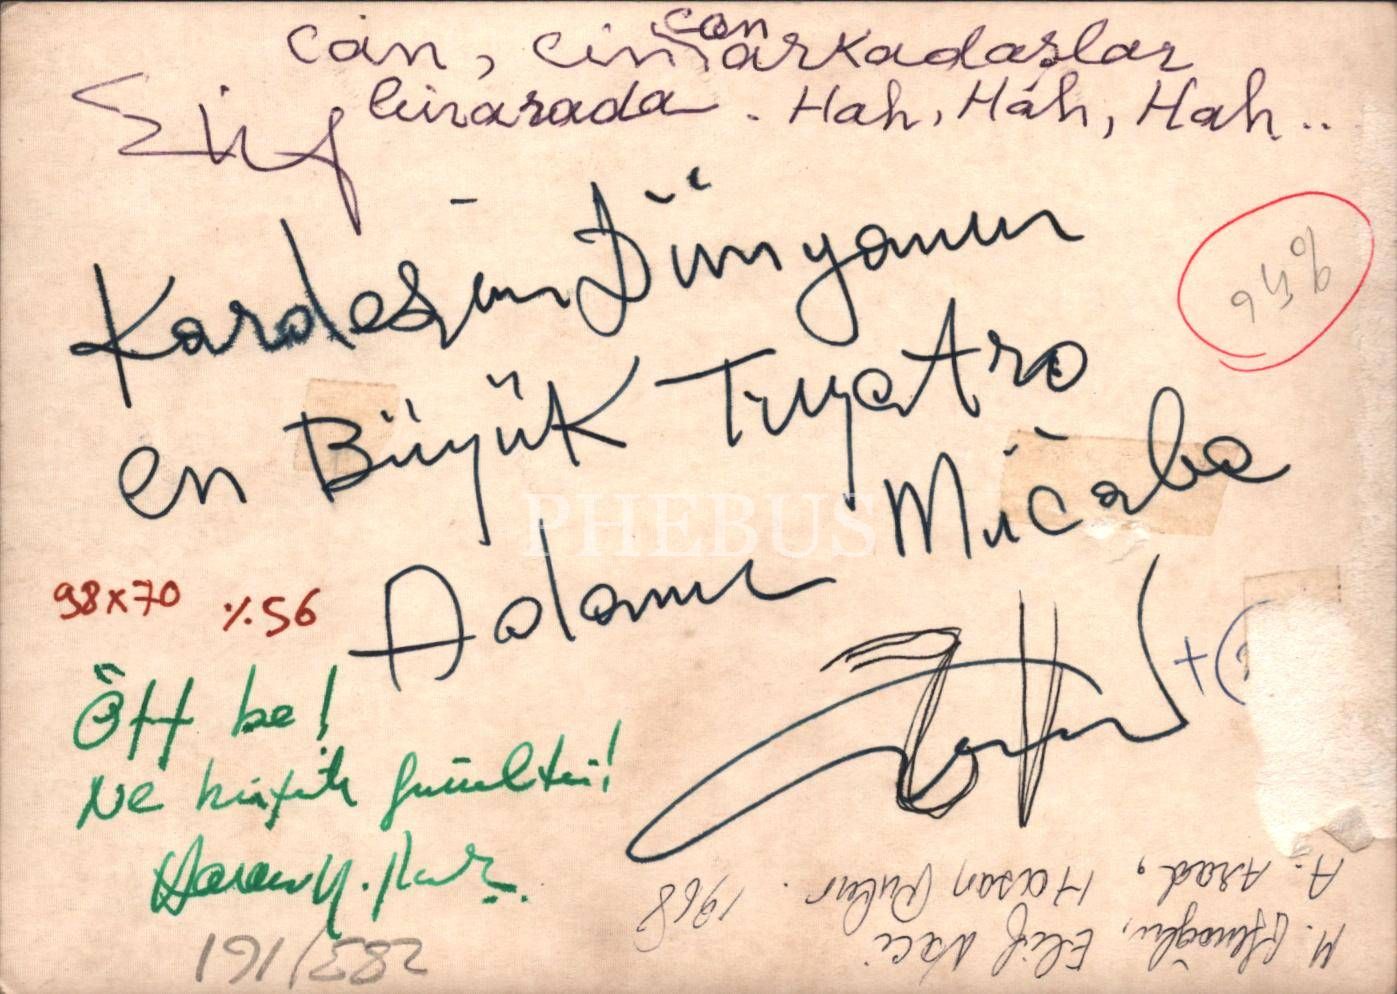 can, cin can arkadaşlar
birarada. Hah, Hah, Hah..
Elif
Kardeşim Dünyanın
en Büyük Tiyatro
Adamı Mücaba
PHEBUS
98x70 %56
Öff be!
Ne biçim gürültü!
%56
M. Eyuboğlu, Elif Naci
A. Arad, Hasan Pulur. 1968
191/582